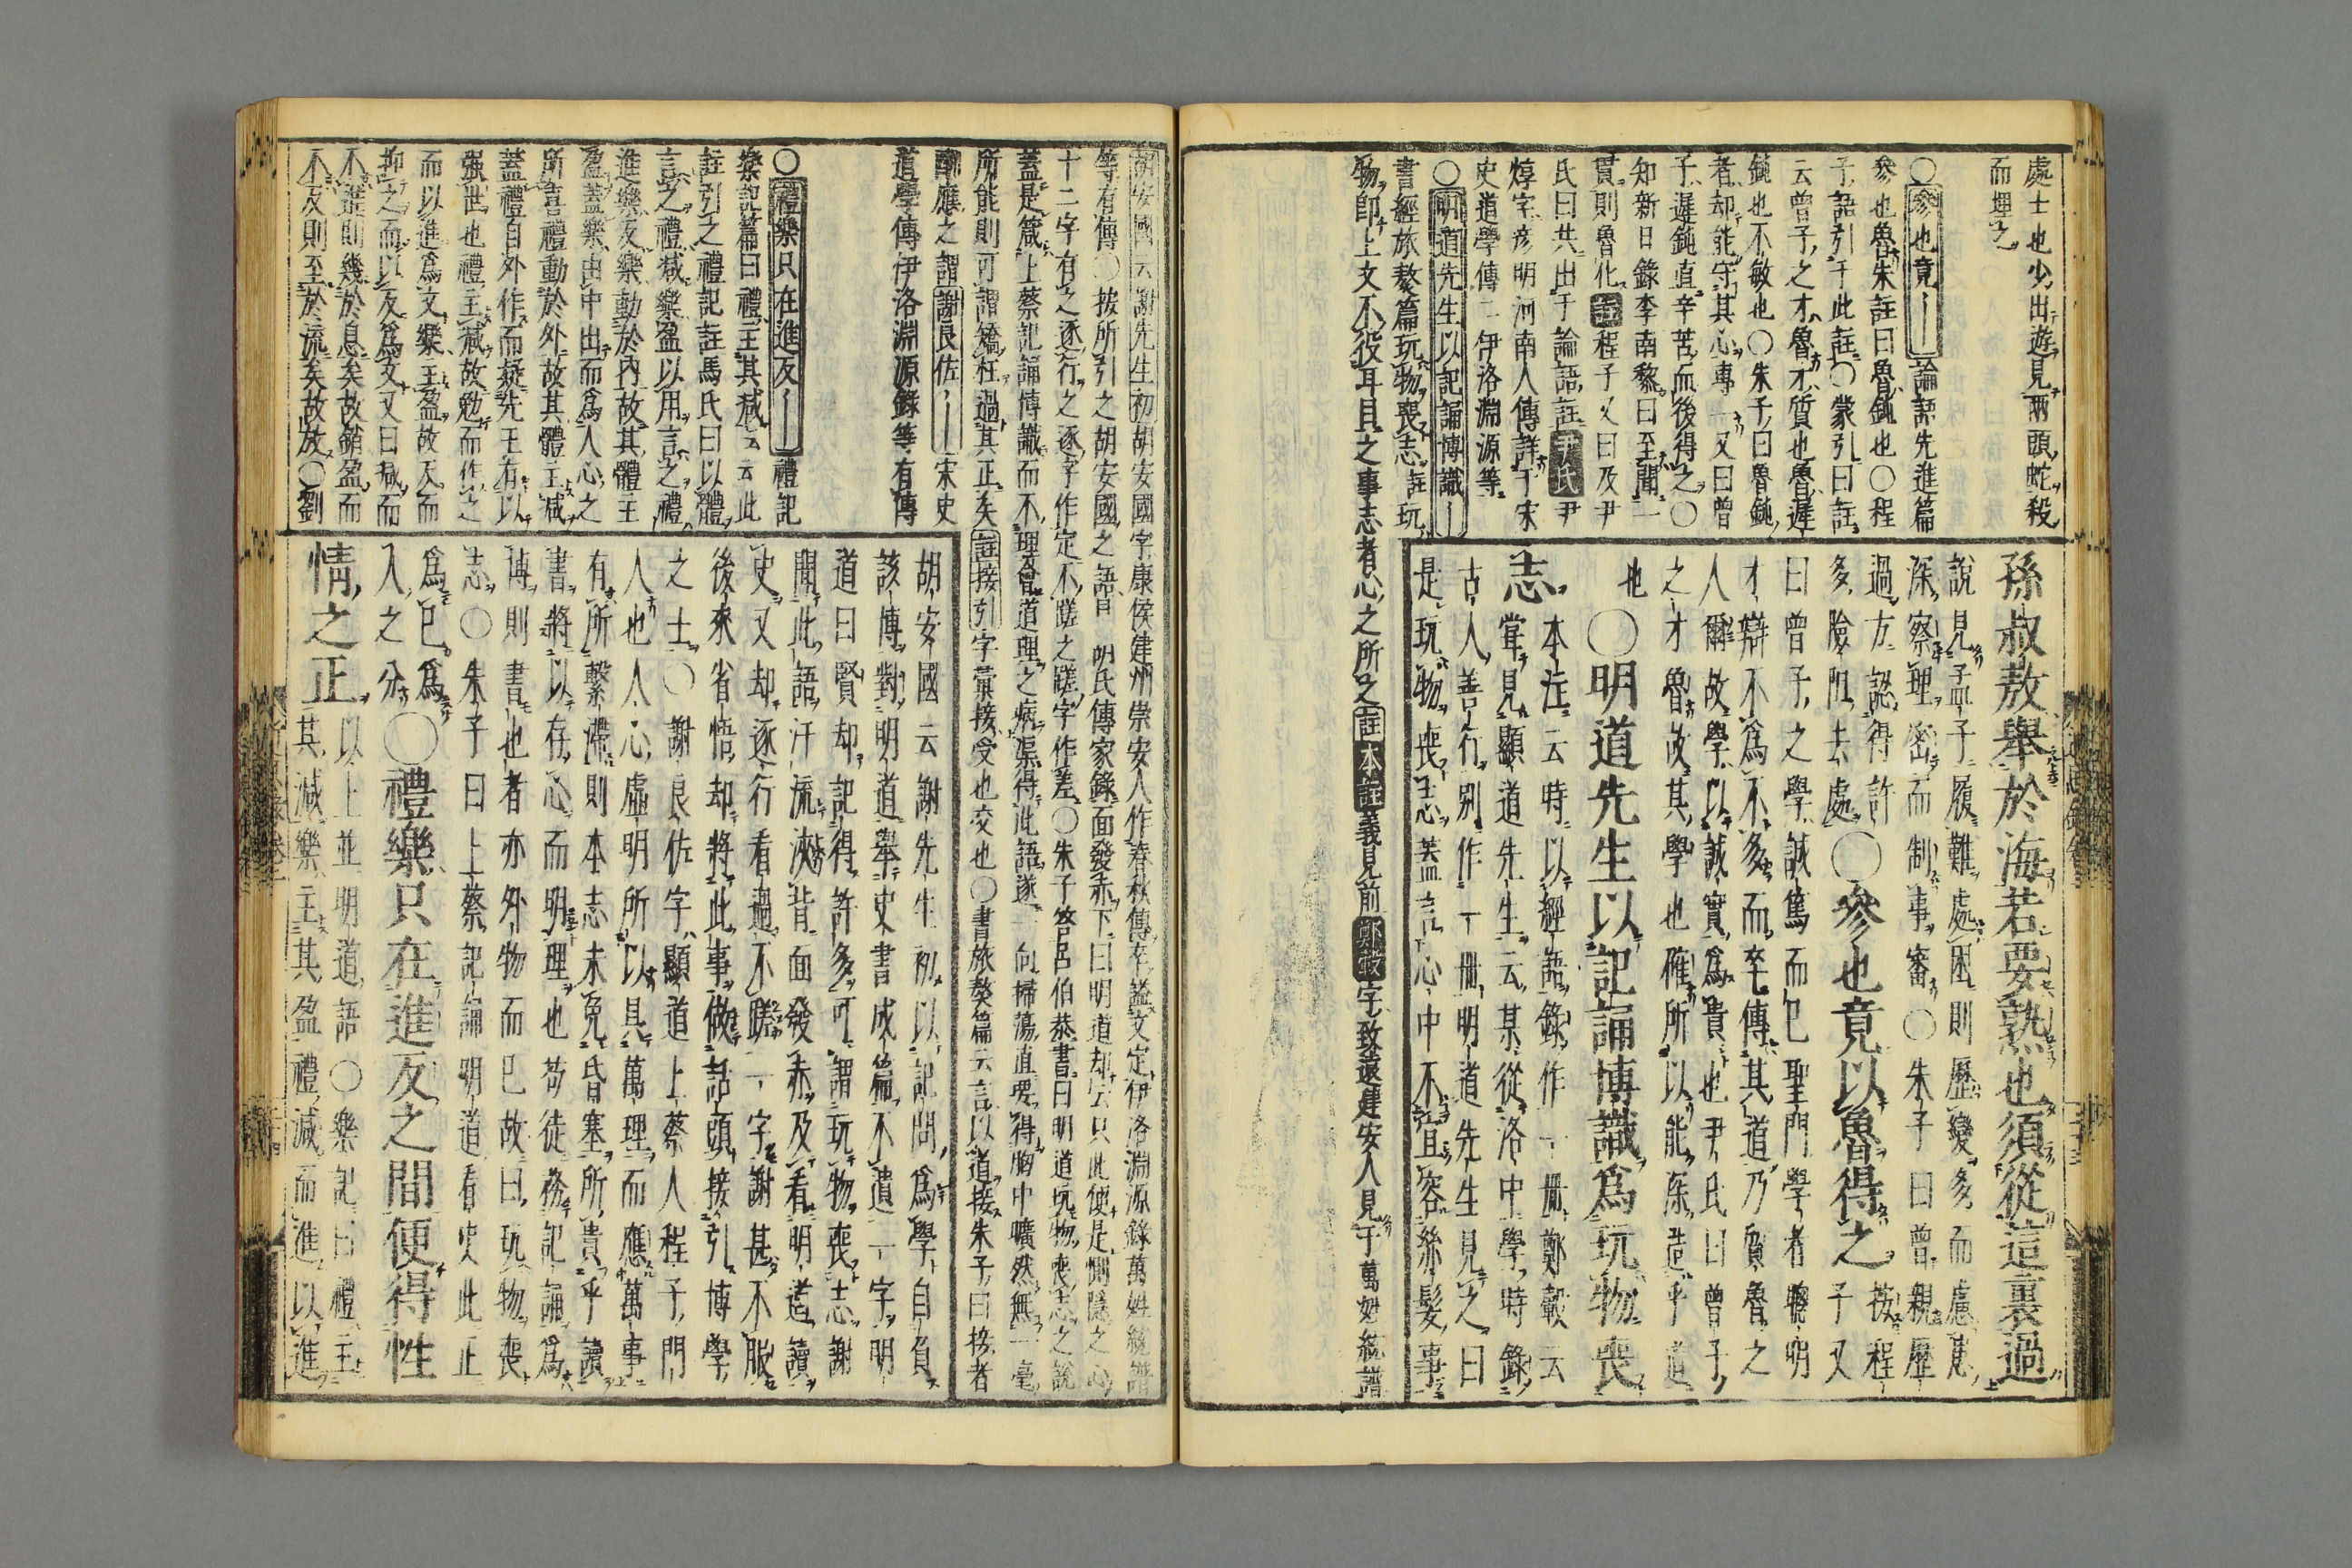 處士也少出遊見兩頭蛇殺
而埋之
○參也竟｜論語先進篇
參也魯朱註曰魯鈍也○程
子語引于此註○蒙引曰註
云曾子之才魯才質也魯遲
鈍也不敏也○朱子曰魯鈍
者却能守其心專一又曰曾
子遲鈍直辛苦而後得之○
知新日錄李南黎曰至聞一
貫則魯化註程子又曰及尹
氏曰共出于論語註尹氏尹
焞字彦明河南人傳詳于宋
史道學傳一伊洛淵源等
○明道先生以記誦博識｜
書經旅獒篇玩物喪志註玩
物即上文不役耳目之事志者心之所之註本註義見前鄭轂字致遠建安人見于萬姓統譜
孫叔敖舉於海若要熟也須從這裏過
說見孟子履難處困則歷變多而慮患
深察理密而制事審○朱子曰曾親歷
過方認得許
多險阻去處○參也竟以魯得之按程子又
曰曾子之學誠篤而已聖門學者聰明
才辯不爲不多而卒傳其道乃質魯之
人爾故學以誠實爲貴也尹氏曰曾子
之才魯故其學也確所以能深造乎道
也○明道先生以記誦博識爲玩物喪
志本注云時以經語錄作一册鄭轂云
甞見顯道先生云某從洛中學時錄
古人善行別作一册明道先生見之曰
是玩物喪志蓋言心中不宜容絲髮事
胡安國云謝先生初胡安國字康侯建州崇安人作春秋傳卒謚文定伊洛淵源錄萬姓統譜
等有傳○按所引之胡安國之語胡氏傳家錄面發赤下曰明道却云只此便是惻隱之心
十二字有之逐行之逐字作定不蹉之蹉字作差○朱子答呂伯恭書曰明道玩物喪志之說
蓋是箴上蔡記誦博識而不理會道理之病渠得此語遂一向掃蕩直要得胸中曠然無一毫
所能則可謂矯枉過其正矣註接引字彙接受也交也○書旅獒篇云言以道接朱子曰接者
酬應之謂謝良佐｜宋史
道學傳伊洛淵源錄等有傳
○禮樂只在進反｜禮記
樂記篇曰禮主其减云云此
註引之禮記註馬氏曰以體
言之禮减樂盈以用言之禮
進樂反樂動於內故其體主
盈蓋樂由中出而爲人心之
所喜禮動於外故其體主减
蓋禮自外作而疑先王有以
強世也禮主减故勉而作之
而以進爲文樂主盈故反而
抑之而以反爲文又曰减而
不進則幾於息矣故銷盈而
不反則至於流矣故放○劉
胡安國云謝先生初以記問爲學自負
該博對明道舉史書成篇不遺一字明
道曰賢却記得許多可謂玩物喪志謝
聞此語汗流浹背面發赤及看明道讀
史又却逐行看過不蹉一字謝甚不服
後來省悟却將此事做話頭接引博學
之士○謝良佐字顯道上蔡人程子門
人也人心虛明所以具萬理而應萬事
有所繫滯則本志未免昏塞所貴乎讀
書將以存心而明理也苟徒務記誦爲
博則書也者亦外物而已故曰玩物喪
志○朱子曰上蔡記誦明道看史此正
爲已爲
人之分○禮樂只在進反之間便得性
情之正以上並明道語○樂記曰禮主
其减樂主其盈禮减而進以進